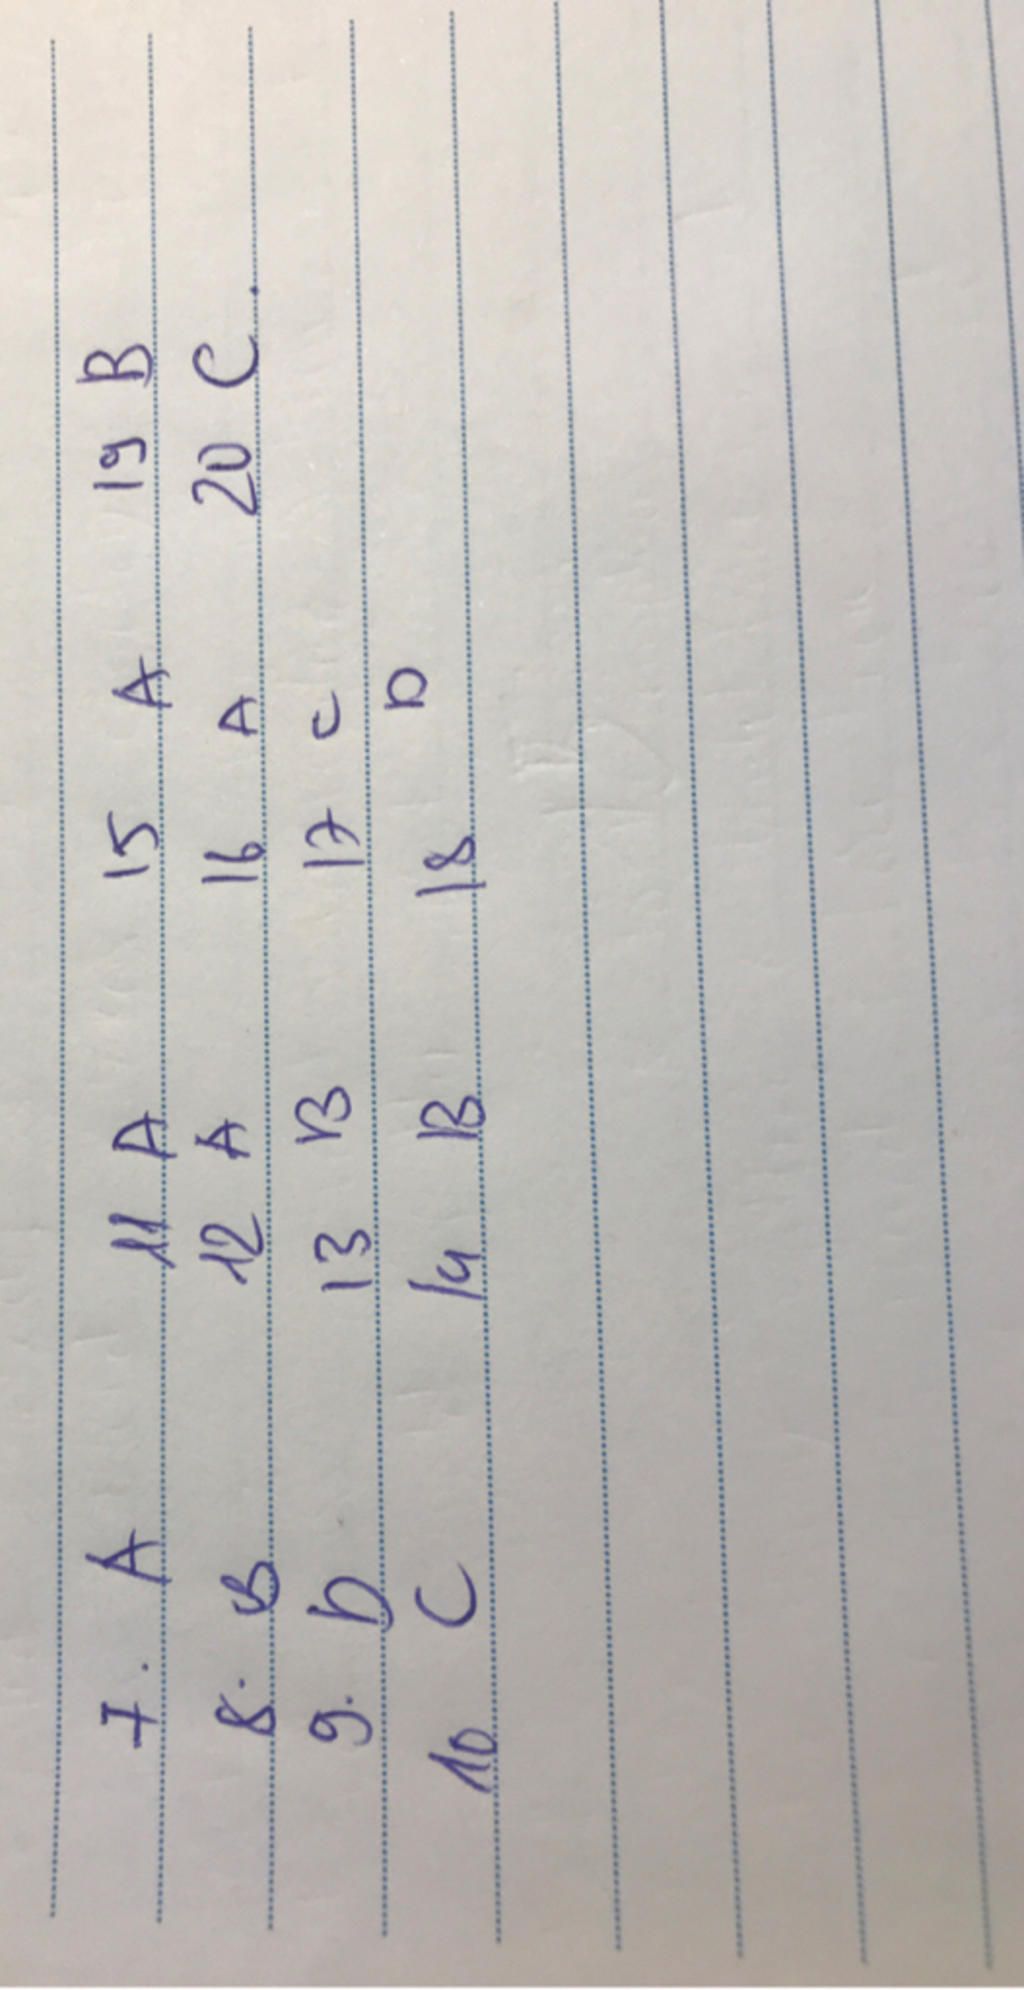 7. A 11 A 15 A 19 B
8. B 12 A 16 A 20 C.
9. D 13 B 17 C
10 C 14 B 18 D